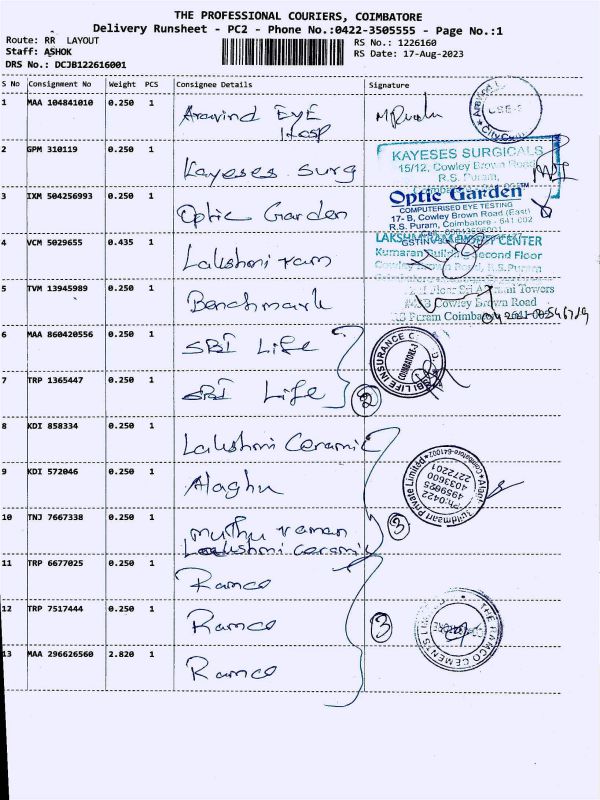 THE PROFESSIONAL COURIERS, COIMBATORE
Delivery Runsheet - PC2 - Phone No.:0422-3505555 - Page No.:1
Route: RR LAYOUT
RS No.: 1226160
Staff: ASHOK
RS Date: 17-Aug-2023
DRS No.: DCJB122616001
S No Consignment No Weight PCS Consignee Details Signature
1 MAA 104841010 0.250 1 Aravind Eye
Hosp
CBE-2
City
2 GPM 310119 0.250 1 Kayeses Surg
KAYESES SURGICALS
15/12, Cowley Brown Road
R.S. Puram,
3 IXM 504256993 0.250 1 Optic Garden
Optic Garden
COMPUTERISED EYE TESTING
17-B, Cowley Brown Road (East)
R.S. Puram, Coimbatore - 641 002
4 VCM 5029655 0.435 1 Lakshmi ram
CENTER
Kumaran Building Second Floor
Cowley Brown Road, R.S.Puram
5 TVM 13945989 0.250 1 Benchmark
Towers
Cowley Brown Road
RS Puram Coimbatore
6 MAA 860420556 0.250 1 SBI Life
SBI LIFE INSURANCE
COIMBATORE-2
7 TRP 1365447 0.250 1 SBI Life
2
8 KDI 858334 0.250 1 Lakshmi Ceramic
9 KDI 572046 0.250 1 Alaghu
Buildmaart Private Limited
Coimbatore-641002
Ph:0422
4959825
4033600
2272201
10 TNJ 7667338 0.250 1 muthu raman
Lakshmi Ceramic
3
11 TRP 6677025 0.250 1 Ramco
12 TRP 7517444 0.250 1 Ramco
3
THE RAMCO CEMENTS LIMITED
13 MAA 296626560 2.820 1 Ramco